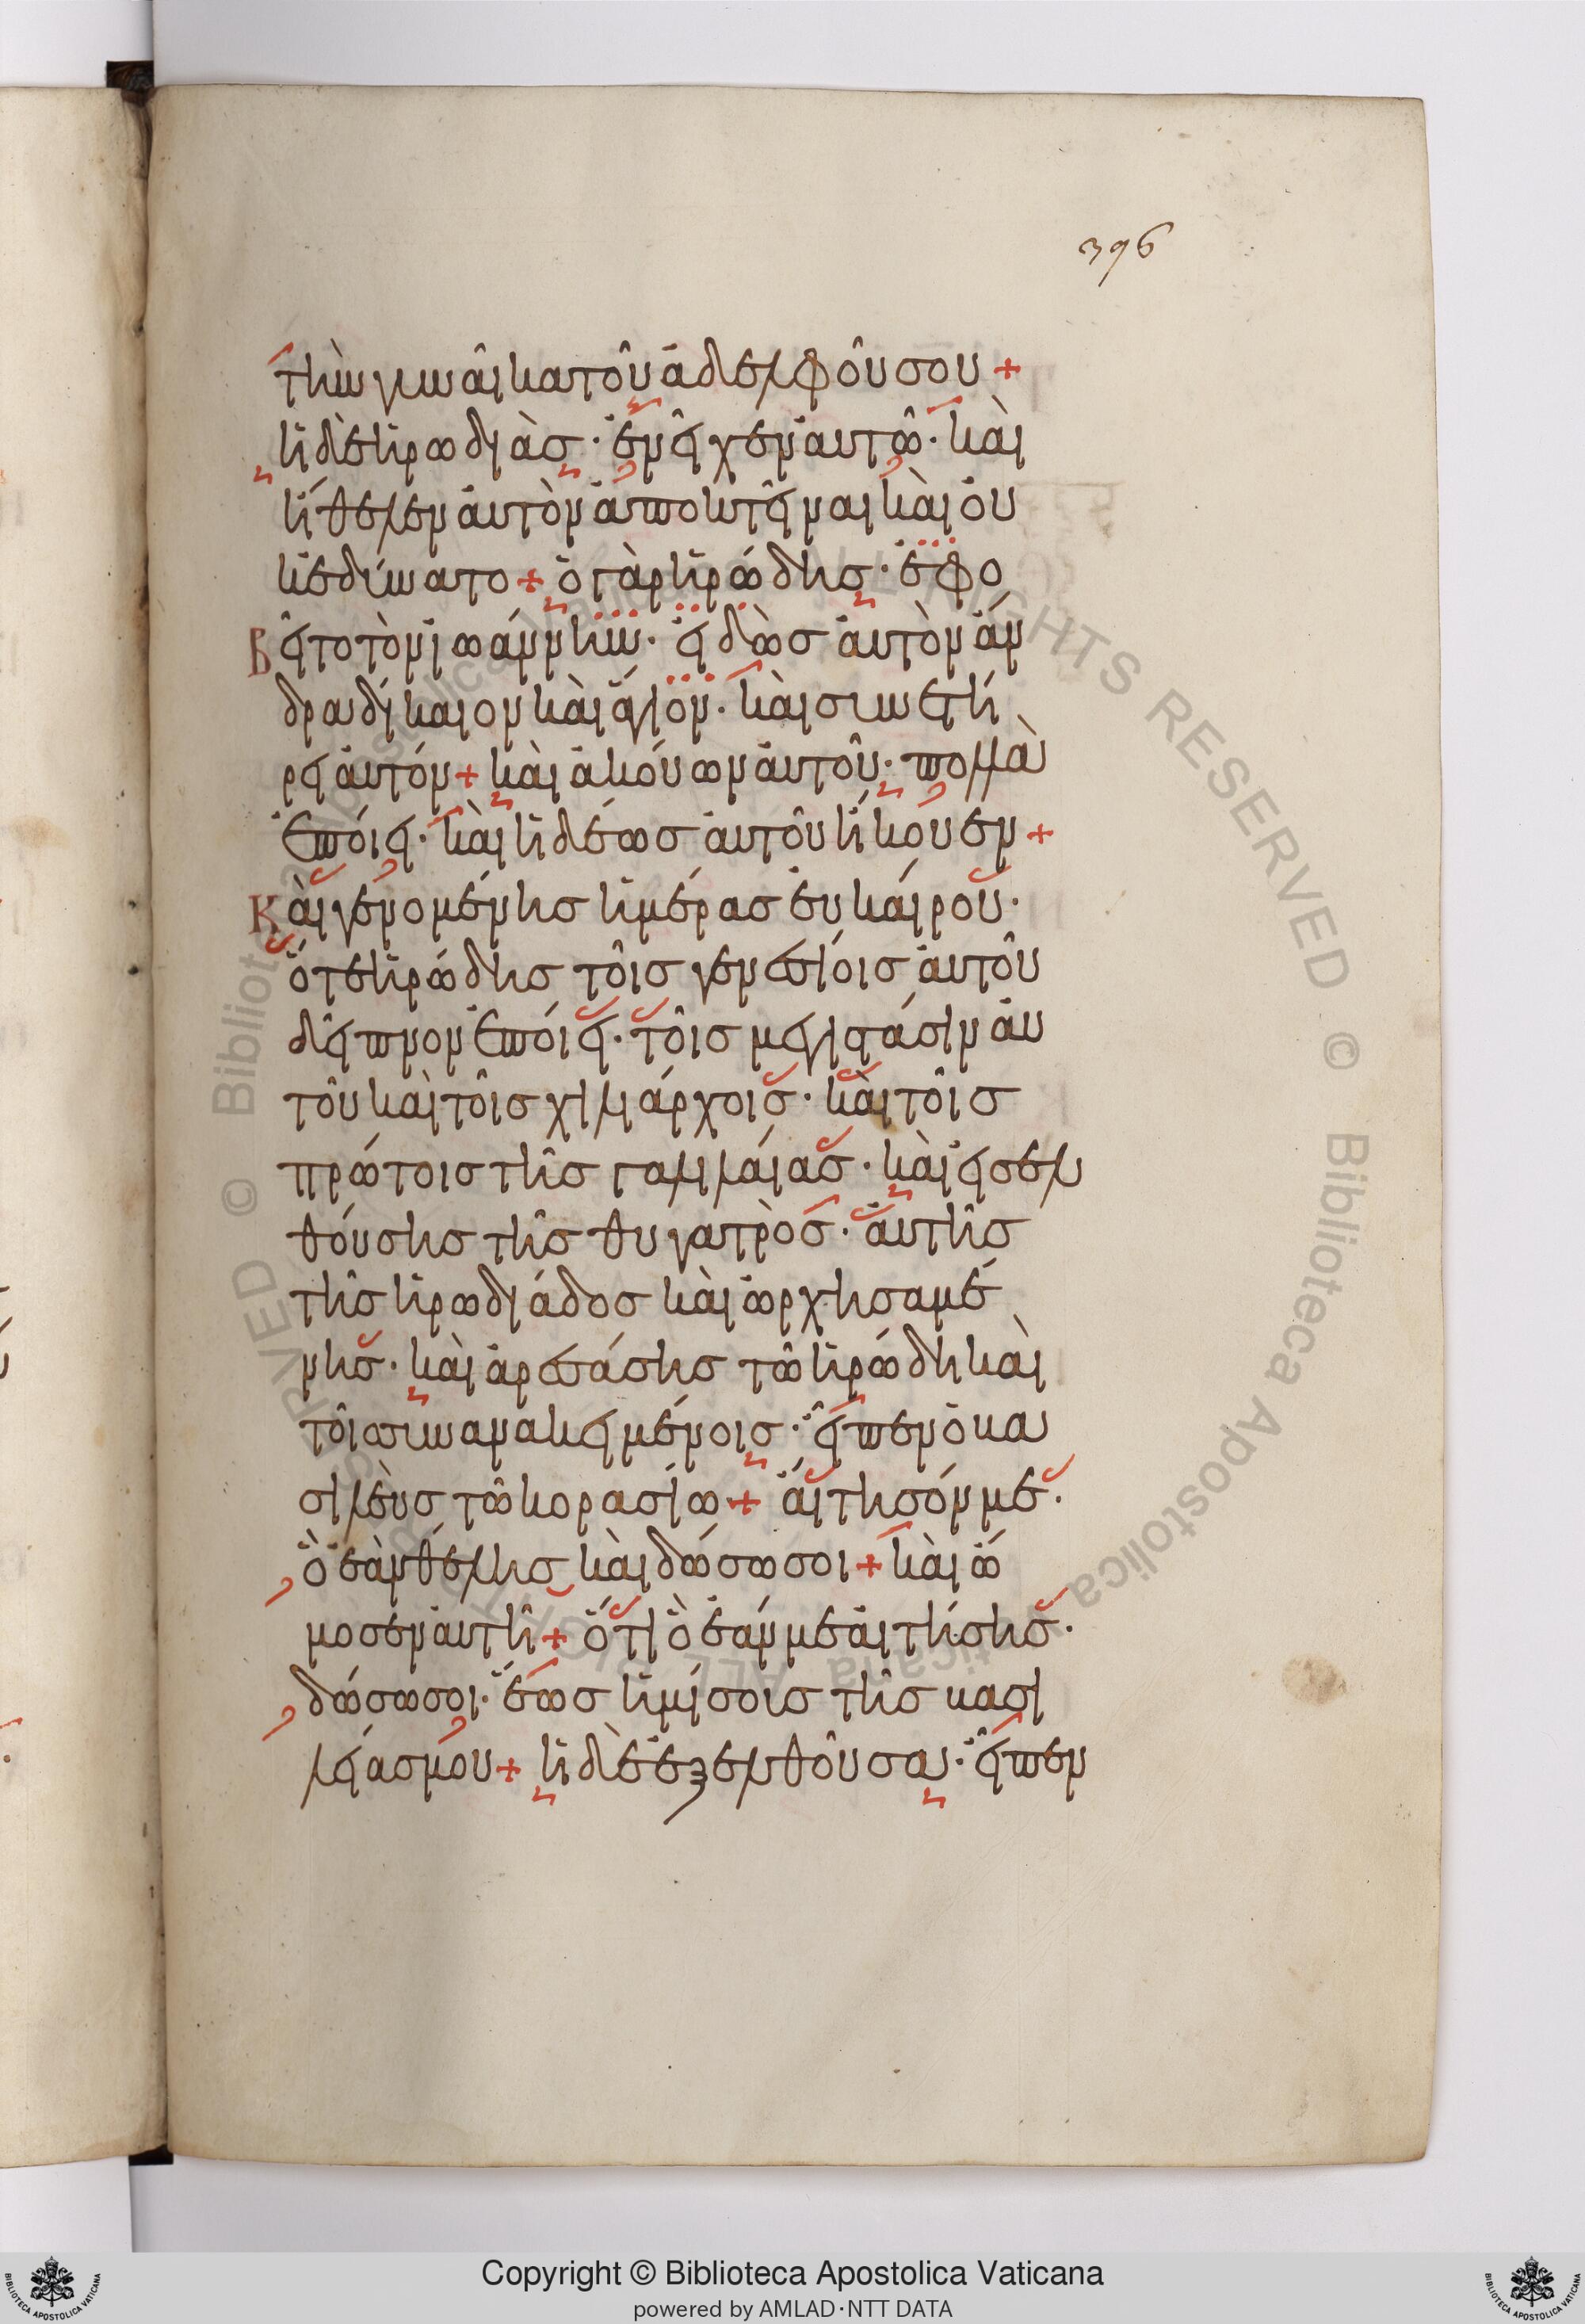 396
τὴν γυναῖκα τοῦ ἀδελφοῦ σου +
ἡ δὲ ἡρωδιὰς · ἐνεῖχεν αὐτῶ · καὶ
ἤθελεν αὐτὸν ἀποκτεῖναι καὶ οὐ
κ ἐδύνατο + ὁ γὰρ ἡρώδης · ἐφο
βεῖτο τὸν ἰωάννην · εἰδὼς αὐτὸν ἄν
δρα δίκαιον καὶ ἅγιον · καὶ συνετή
ρει αὐτόν + καὶ ἀκούων αὐτοῦ · πολλὰ
ἐποίει · καὶ ἡδέως αὐτοῦ ἤκουεν +
Καὶ γενομένης ἡμέρας εὐκαίρου ·
ὅτε ἡρώδης τοῖς γενεσίοις αὐτοῦ
δεῖπνον ἐποίει · τοῖς μεγιστάσιν αὐ
τοῦ καὶ τοῖς χιλιάρχοις · καὶ τοῖς
πρώτοις τῆς γαλιλαίας · καὶ εἰσελ
θούσης τῆς θυγατρὸς · αὐτῆς
τῆς ἡρωδιάδος καὶ ὀρχησαμέ
νης · καὶ ἀρεσάσης τῶ ἡρώδη καὶ
τοῖς συνανακειμένοις · εἶπεν ὁ βα
σιλεὺς τῶ κορασίω + αἴτησόν με ·
ὃ ἐὰν θέλης καὶ δώσω σοι + καὶ ὤ
μοσεν αὐτῆ + ὅτι ὃ ἐάν με αἰτήσης ·
δώσω σοι · ἕως ἡμίσους τῆς βασι
λείας μου + ἡ δὲ ἐξελθοῦσα · εἶπεν
Copyright © Biblioteca Apostolica Vaticana
powered by AMLAD·NTT DATA